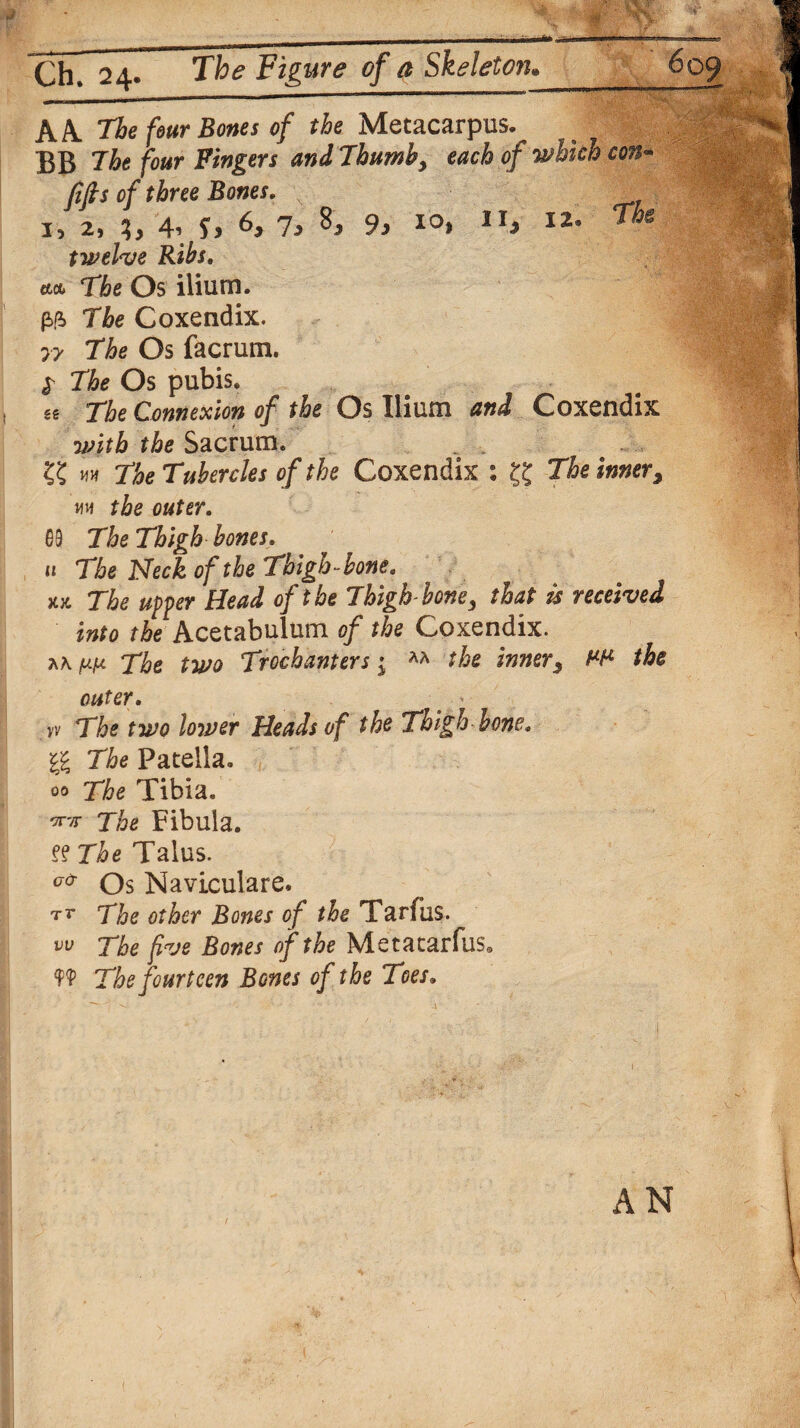 Ch. 24. The Figure of a Skeleton. 609
AA The four Bones of the Metacarpus.
BB The four Fingers and Thumb, each of which con-
ſiſts of three Bones.
1, 2, 3, 4, 5, 6, 7, 8, 9, 10, 11, 12. The
twelve Ribs.
αα The Os ilium.
ββ The Coxendix.
γγ The Os ſacrum.
δ The Os pubis.
εε The Connexion of the Os Ilium and Coxendix
with the Sacrum.
ζζ ηη The Tubercles of the Coxendix : ζζ The inner,
ηη the outer.
θθ The Thigh-bones.
ιι The Neck of the Thigh-bone.
κκ The upper Head of the Thigh-bone, that is received
into the Acetabulum of the Coxendix.
λλ μμ The two Trochanters; λλ the inner, μμ the
outer.
νν The two lower Heads of the Thigh-bone.
ξξ The Patella.
οο The Tibia.
ππ The Fibula.
ρρ The Talus.
σσ Os Naviculare.
ττ The other Bones of the Tarſus.
υυ The five Bones of the Metatarſus.
φφ The fourteen Bones of the Toes.
AN